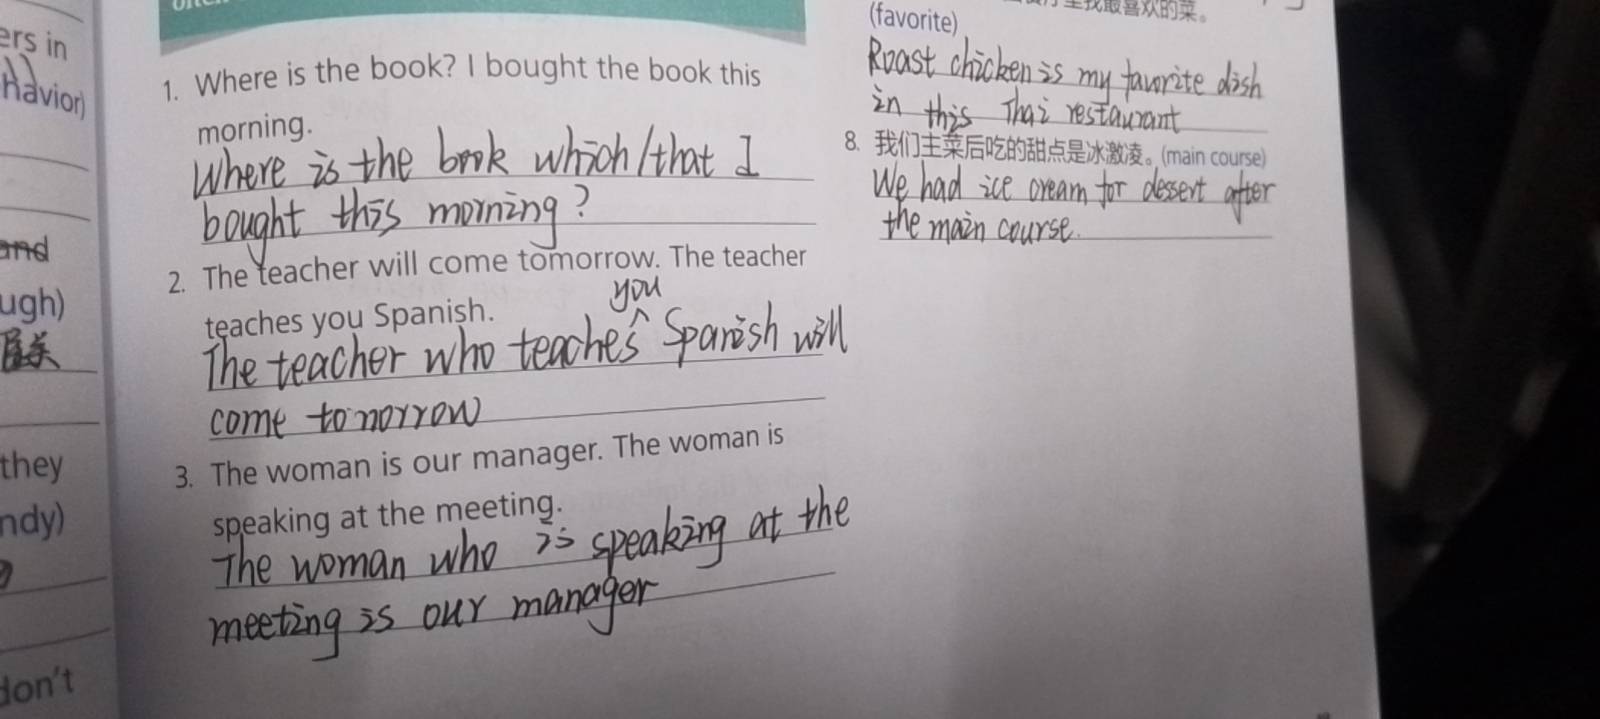 ers in
havior)
and
ugh)
they
ndy)
don't
1. Where is the book? I bought the book this
morning.
Where is the book which/that I
bought this morning?
2. The teacher will come tomorrow. The teacher
teaches you Spanish.
you
The teacher who teaches ^ Spanish will
come tomorrow
3. The woman is our manager. The woman is
speaking at the meeting.
The woman who is speaking at the
meeting is our manager
我最喜欢的菜。
(favorite)
Roast chicken is my favorite dish
in this Thai restaurant
8. 我们主菜后吃的甜点是冰激凌。(main course)
We had ice cream for dessert after
the main course.